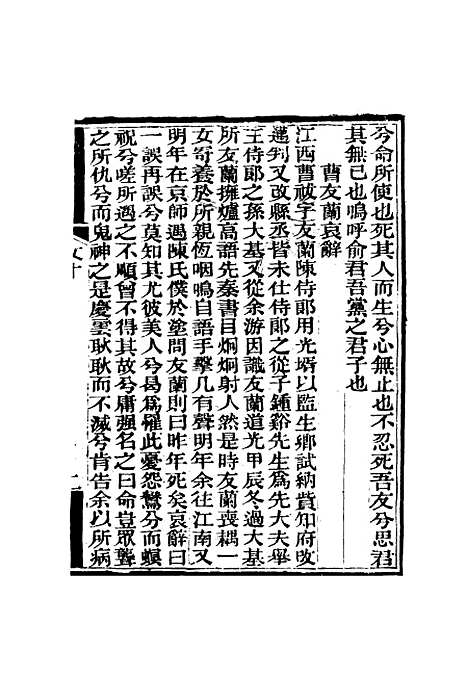 兮命所使也死其人而生兮心無止也不忍死吾友兮思君
其無已也嗚呼俞君吾黨之君子也
曹友蘭哀辭
江西曹祓字友蘭陳侍郎用光壻以監生鄉試納貲知府改
通判又改縣丞皆未仕侍郎之從子鍾谿先生爲先大夫舉
主侍郎之孫大基又從余游因識友蘭道光甲辰冬過大基
所友蘭擁爐高語先秦書目炯炯射人然是時友蘭喪耦一
女寄養於所親恆咽嗚自語手擊几有聲明年余往江南又
明年在京師遇陳氏僕於塗問友蘭則曰昨年死矣哀辭曰
一誤再誤兮莫知其尤彼美人兮曷爲罹此憂怨鴛兮而螟
祝兮嗟所遇之不順曾不得其故兮庸强名之曰命豈眾聾
之所仇兮而鬼神之是慶雲耿耿而不滅兮肯告余以所病
文十